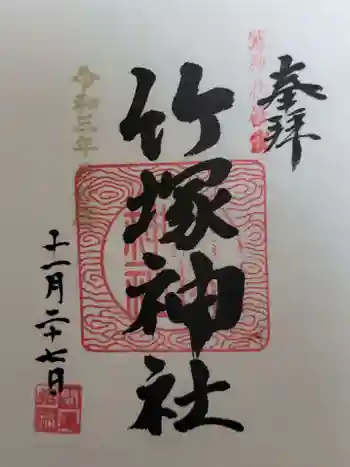 奉拝
竹塚神社
令和三年
十一月二十七日